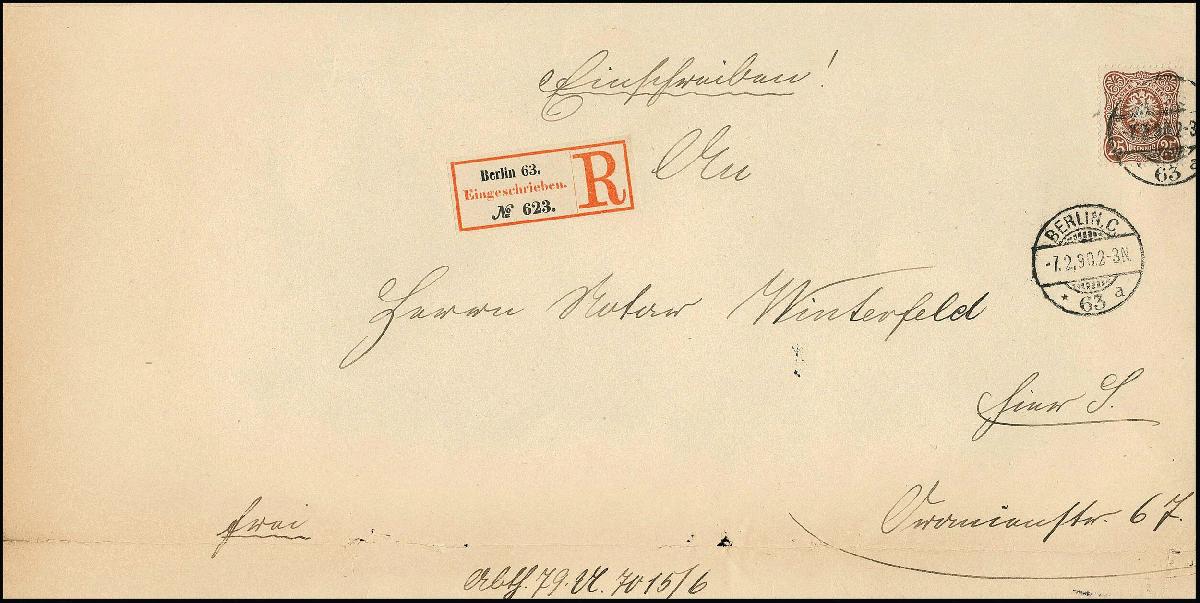 Einschreiben!
Berlin 63.
Eingeschrieben.
№ 623.
R
An
25 PFENNIG 25
63 a
BERLIN.C.
-7.2.90.2-3N.
* 63 a
Herrn Notar Winterfeld
hier S.
Oranienstr. 67.
frei
Abth. 79. A. 7015/6